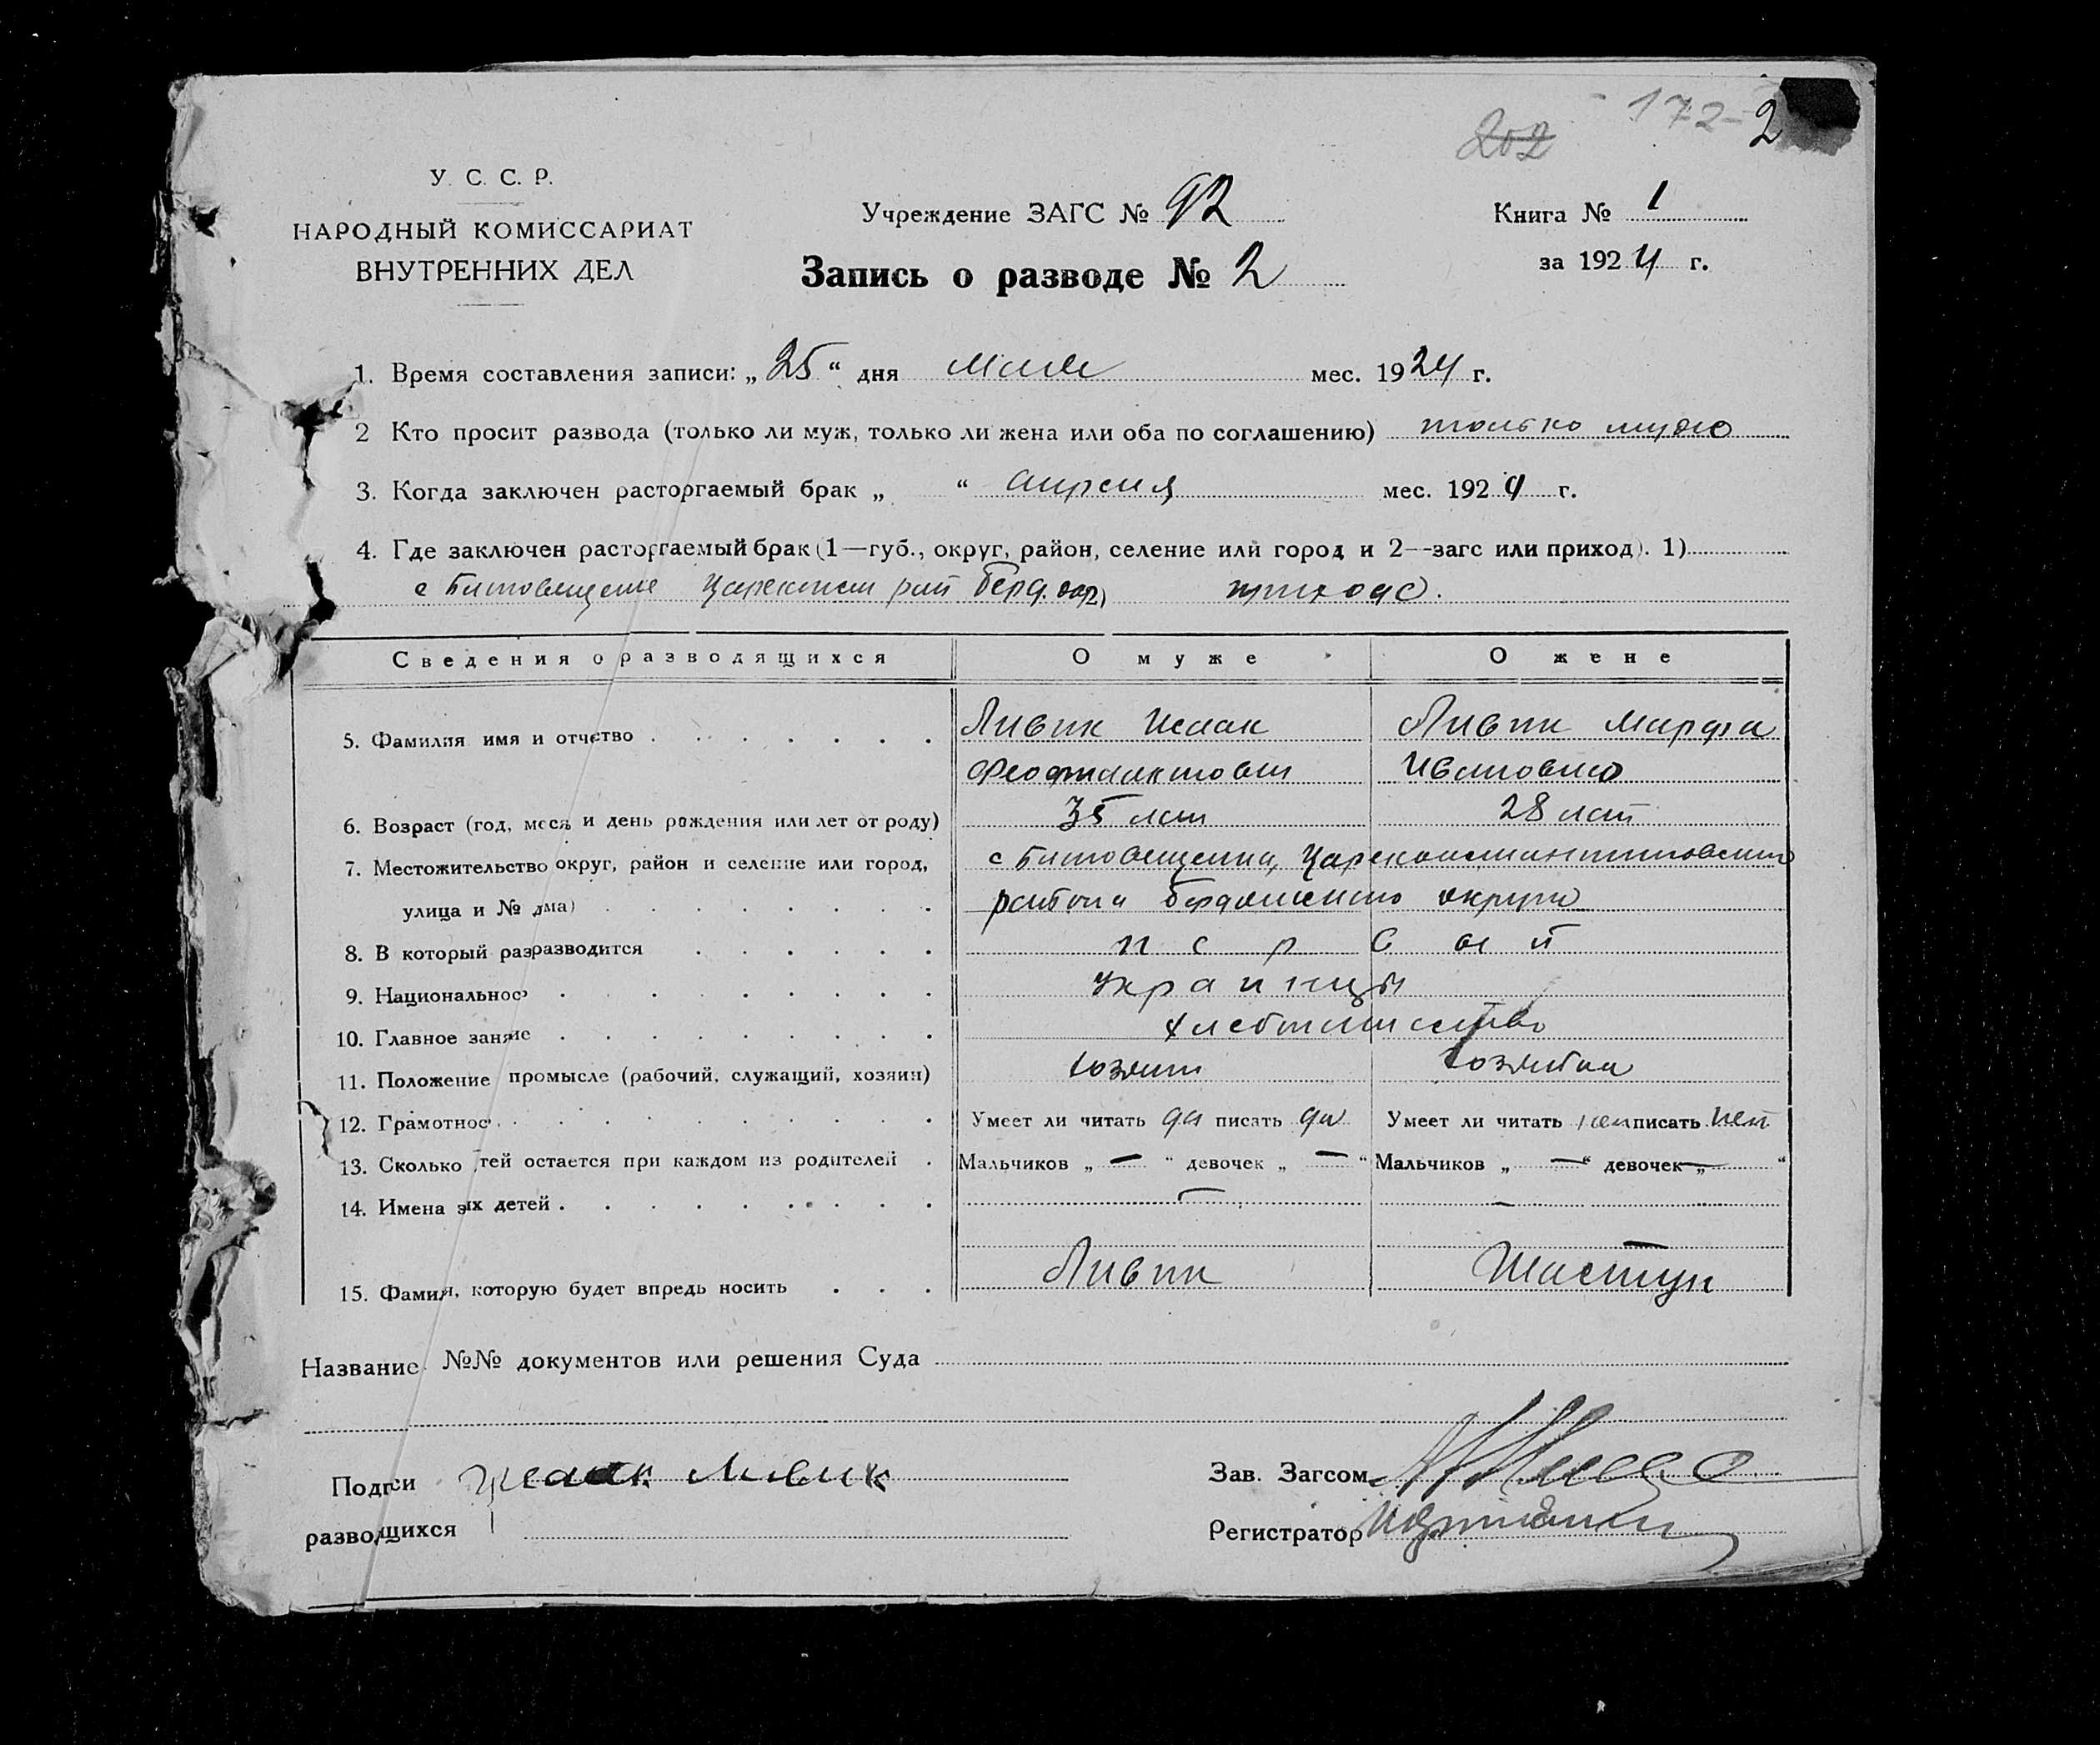 202 - 172 - 2
У. С. С. Р.
НАРОДНЫЙ КОМИССАРИАТ
ВНУТРЕННИХ ДЕЛ
Учреждение ЗАГС № 92
Запись о разводе № 2
Книга № 1
за 1924 г.
1. Время составления записи: „25“ дня мая мес. 1924 г.
2 Кто просит развода (только ли муж, только ли жена или оба по соглашению) только муж
3. Когда заключен расторгаемый брак „ “ апреля мес. 1924 г.
4. Где заключен расторгаемый брак (1—губ., округ, район, селение или город и 2--загс или приход). 1)
с 2)
Сведения о разводящихся О муже О жене
5. Фамилия имя и отчство Ливик Исаак Ливик Марфа
Феофилактович Ивановна
6. Возраст (год, меся и день рождения или лет от роду) 35 лет 28 лет
7. Местожительство округ, район и селение или город, с Цареконстантиновского
улица и № дма) района Бердянского округа
8. В который разразводится первый
9. Националнос украинцы
10. Главное заняие хлебопашество
11. Положение промысле (рабочий, служащий, хозяин) хозяин хозяйка
12. Грамотнос Умеет ли читать да писать да Умеет ли читать нет писать нет
13. Сколько тей остается при каждом из родителей Мальчиков „ — “ девочек „ — “ Мальчиков „ — “ девочек „ — “
14. Имена эых детей — —
—
15. Фамия, которую будет впредь носить Ливик Шастун
Название №№ документов или решения Суда
Подпси Исаак Ливик Зав. Загсом
разводщихся Регистратор